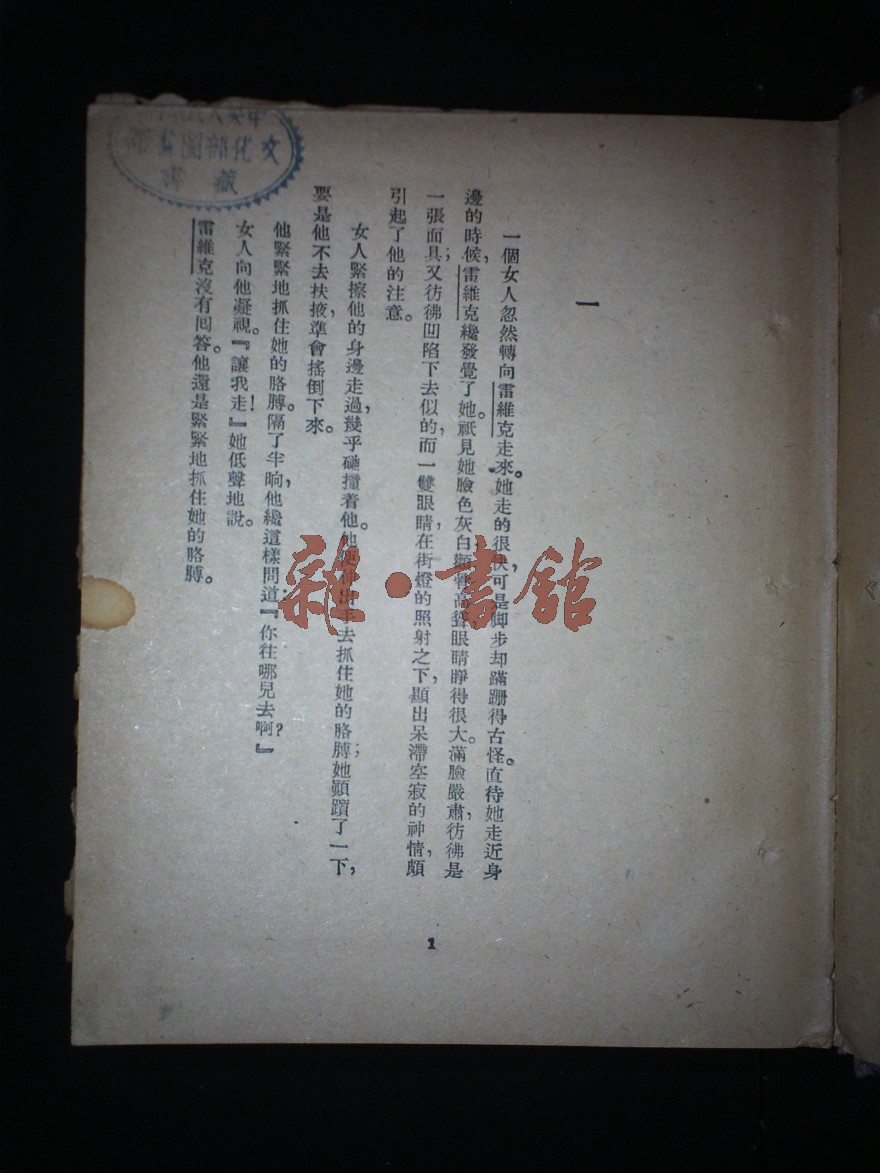 文化部圖書
藏書
一
一個女人忽然轉向雷維克走來。她走的很快，可是脚步却蹣跚得古怪。直待她走近身
邊的時候，雷維克纔發覺了她。祇見她臉色灰白，顴骨高聳，眼睛睜得很大。滿臉嚴肅，彷彿是
一張面具；又彷彿凹陷下去似的，而一雙眼睛，在街燈的照射之下，顯出呆滯空寂的神情，頗
引起了他的注意。
女人緊擦他的身邊走過，幾乎碰撞着他。他便伸出手去抓住她的胳膊；她顛躓了一下，
要是他不去扶掖，準會搖倒下來。
他緊緊地抓住她的胳膊。隔了半晌，他纔這樣問道：『你往哪兒去啊？』
女人向他凝視。『讓我走！』她低聲地說。
雷維克沒有回答。他還是緊緊地抓住她的胳膊。
1
雜·書館